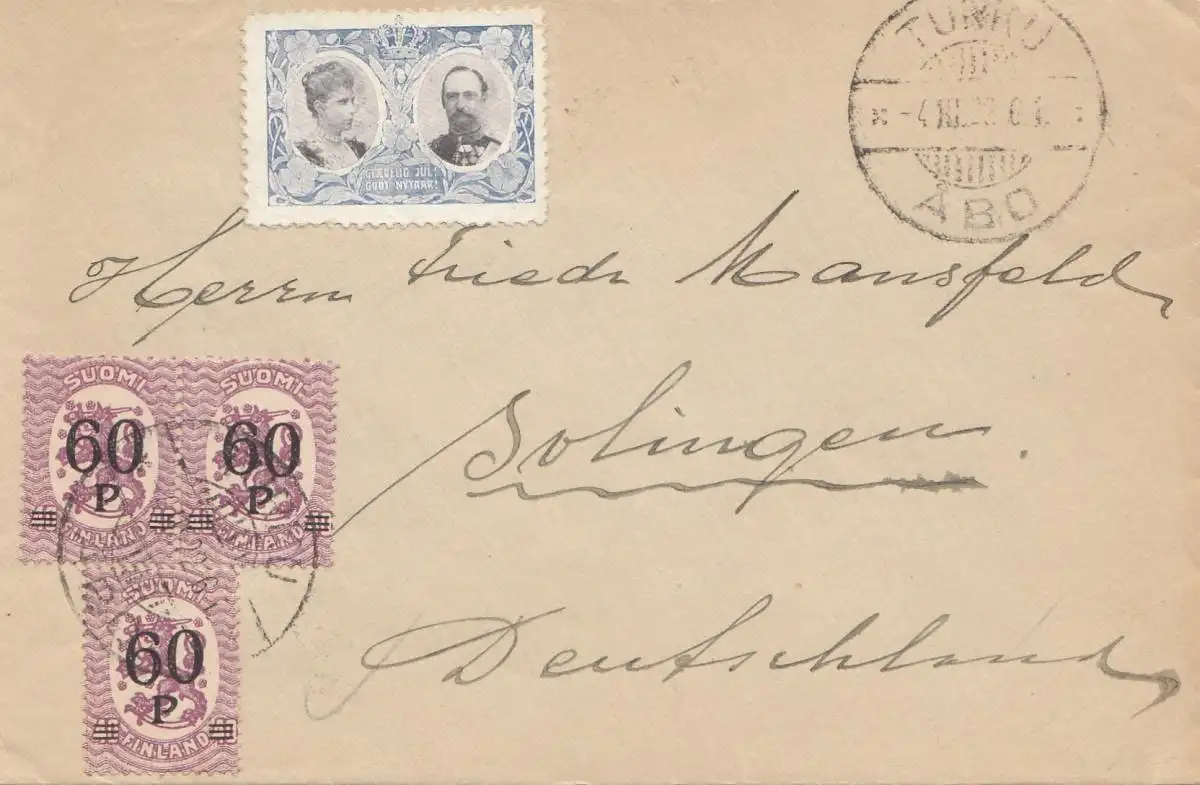 GLÆDELIG JUL!
GODT NYTAAR!
TURKU
ÅBO
Herrn Friedr Mansfeld
Solingen.
Deutschland
SUOMI
60
P
FINLAND
SUOMI
60
P
FINLAND
SUOMI
60
P
FINLAND